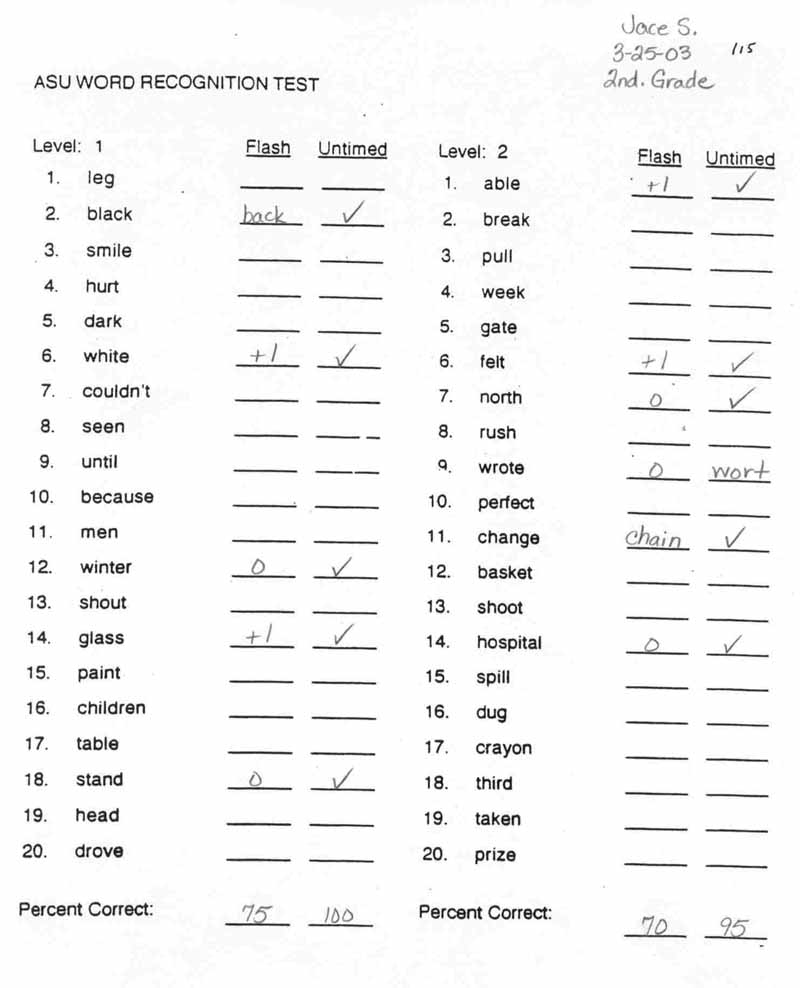 Jace S.
3-25-03 115
2nd. Grade
ASU WORD RECOGNITION TEST
Level: 1 Flash Untimed
1. leg
2. black back ✓
3. smile
4. hurt
5. dark
6. white +1 ✓
7. couldn't
8. seen
9. until
10. because
11. men
12. winter 0 ✓
13. shout
14. glass +1 ✓
15. paint
16. children
17. table
18. stand 0 ✓
19. head
20. drove
Percent Correct: 75 100
Level: 2 Flash Untimed
1. able +1 ✓
2. break
3. pull
4. week
5. gate
6. felt +1 ✓
7. north 0 ✓
8. rush
9. wrote 0 wort
10. perfect
11. change chain ✓
12. basket
13. shoot
14. hospital 0 ✓
15. spill
16. dug
17. crayon
18. third
19. taken
20. prize
Percent Correct: 70 95